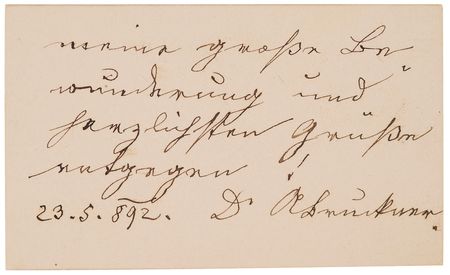 meine große Be„
wunderung und
herzlichsten Grüße
entgegen!
23.5.892. Dr ABruckner.